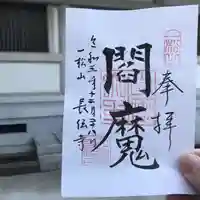 奉拝
閻魔
令和三年十二月二十八日
一松山
長伝寺